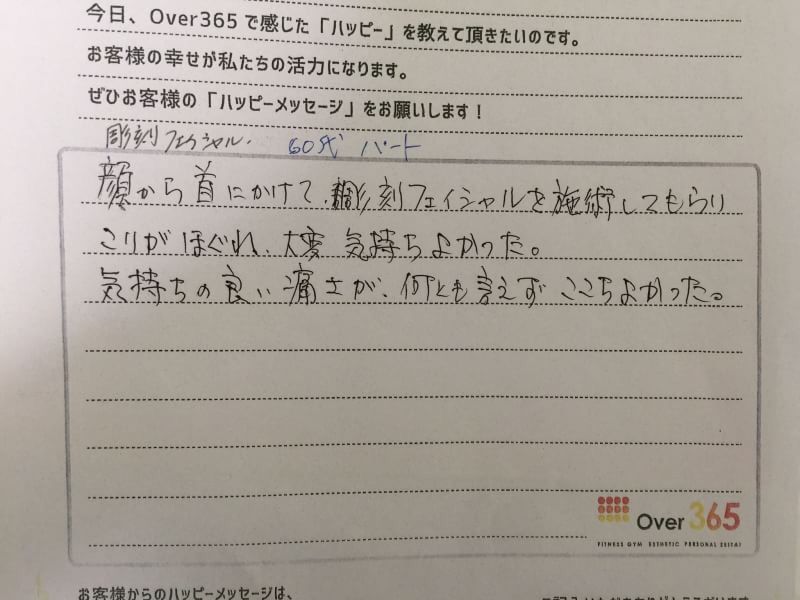 今日、Over365で感じた「ハッピー」を教えて頂きたいのです。
お客様の幸せが私たちの活力になります。
ぜひお客様の「ハッピーメッセージ」をお願いします！
彫刻フェイシャル. 60代 パート
顔から首にかけて、彫刻フェイシャルを施術してもらい
こりがほぐれ、大変 気持ちよかった。
気持ちの良い痛さが、何とも言えず ここちよかった。
Over 365
FITNESS GYM ESTHETIC PERSONAL SEITAI
お客様からのハッピーメッセージは、